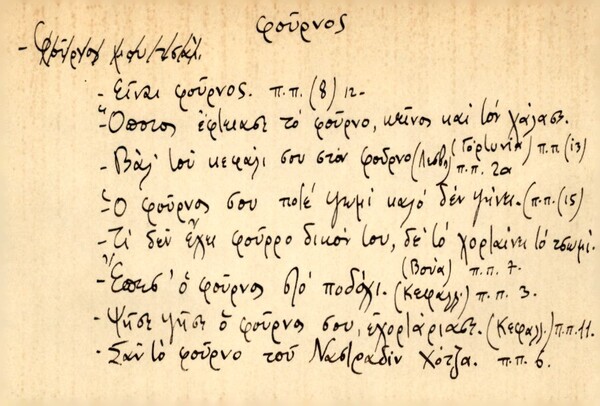 φοῦρνος
- Εἶναι φοῦρνος. π.π. (8) 12-
- Ὅποιος ἔφτιασε τὸ φοῦρνο, κεῖνος καὶ τὸν χάλασε.
- Βάλ' τοῦ κεφάλι σου στὸν φοῦρνο (Λεσβ) (Γορτυνία) π.π (13) π.π. 2α
- Ὁ φοῦρνος σου ποτέ ψωμί καλό δέν ψήνει. (π.π. (15)
- Τί δεν ἔχει φοῦρρο δικόν του, δε τό χορταίνει τό τσωμί.
(Βουα) π.π. 7.
- Ἔπεσ' ὁ φοῦρνος στό ποδάχι. (Κεφαλλ.) π.π. 3.
- Ψῆσε ψῆσε ὁ φοῦρνος σου, ἐχορτάριασε. (Κεφαλλ.) π.π. 11.
- Σαν τό φοῦρνο τοῦ Ναστραδίν Χότζα. π.π. 6.